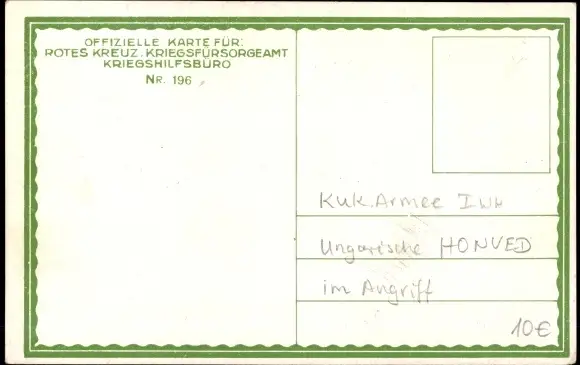 OFFIZIELLE KARTE FÜR:
ROTES KREUZ, KRIEGSFÜRSORGEAMT
KRIEGSHILFSBÜRO
NR. 196
KuK. Armee I WK
Ungarische HONVED
im Angriff
10€